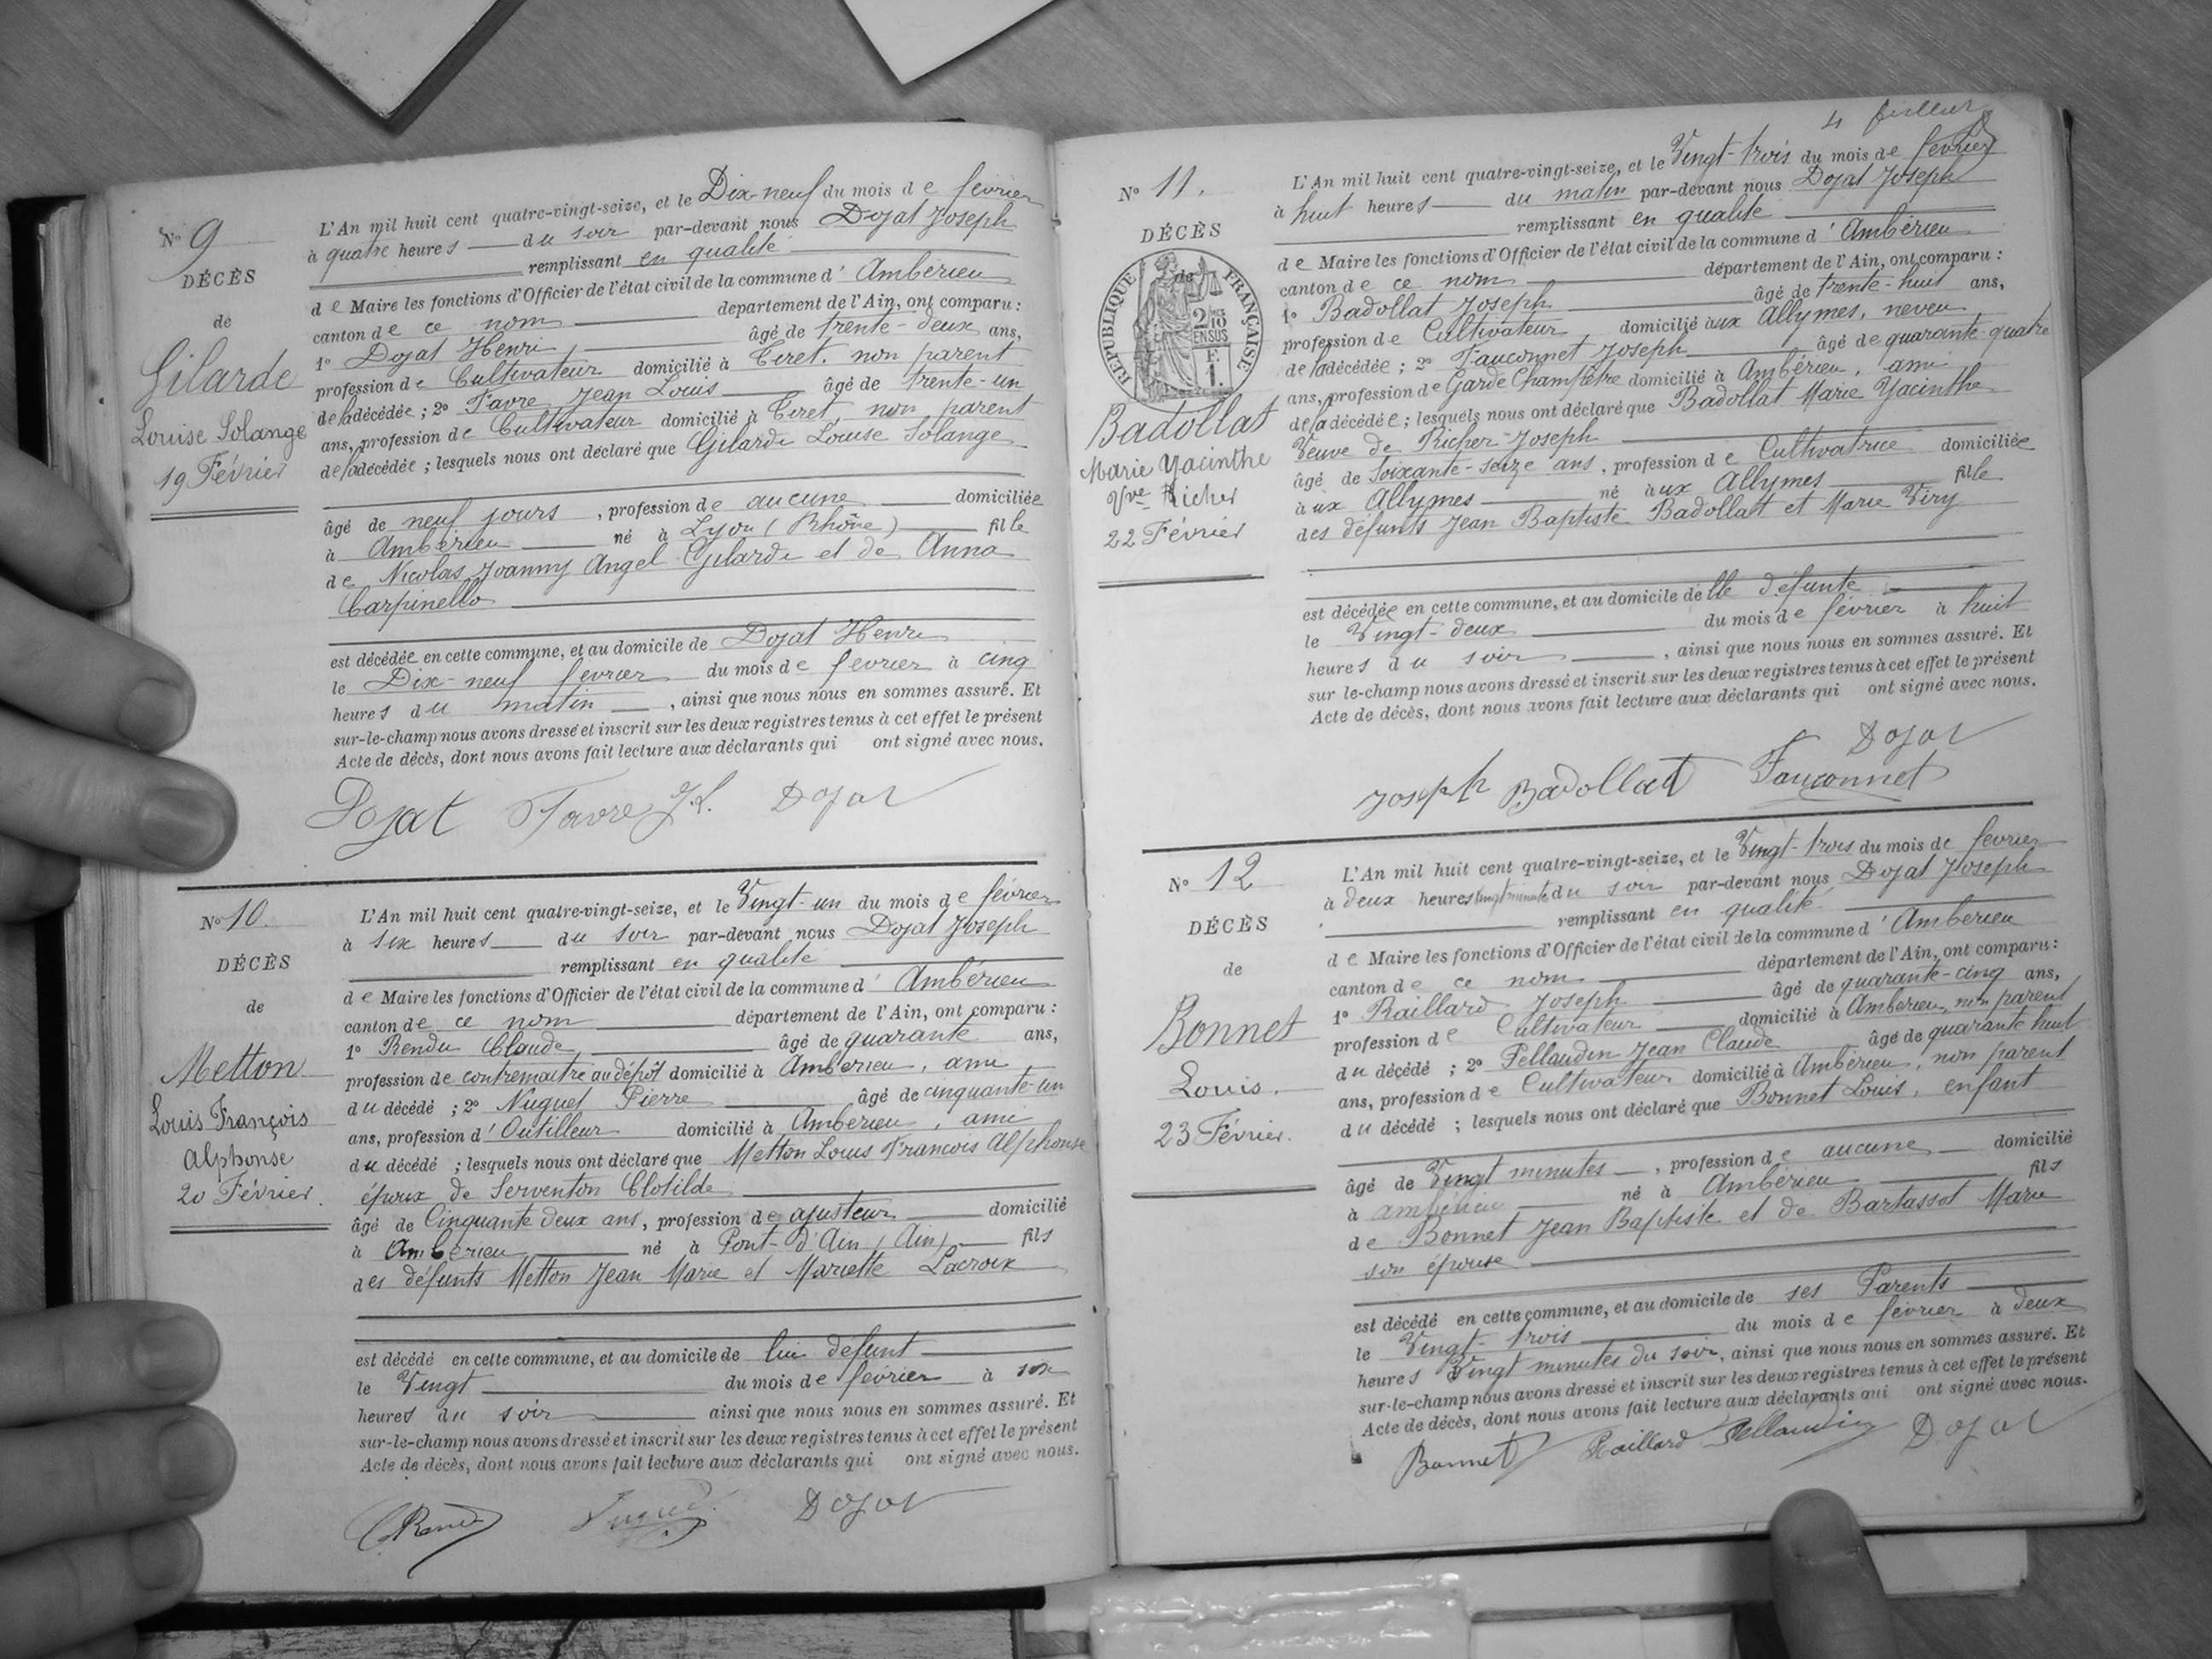 N° 9
DÉCÈS
de
Gilarde
Louise Solange
19 Février
L'An mil huit cent quatre-vingt-seize, et le Dix-neuf du mois de février
à quatre heures du soir par-devant nous Dojat Joseph
remplissant en qualité
de Maire les fonctions d'Officier de l'état civil de la commune d' Ambérieu
canton de ce nom département de l'Ain, ont comparu :
1° Dojat Henri âgé de trente-deux ans,
profession de Cultivateur domicilié à Tiret. non parent
de la décédée ; 2° Favre Jean Louis âgé de trente-un
ans, profession de Cultivateur domicilié à Tiret, non parent
de la décédée ; lesquels nous ont déclaré que Gilarde Louise Solange
âgé de neuf jours , profession de aucune domiciliée
à Ambérieu né à Lyon (Rhône) fille
de Nicolas Joanny Angel Gilarde et de Anna
Carpinello
est décédée en cette commune, et au domicile de Dojat Henri
le Dix-neuf février du mois de février à cinq
heures du matin , ainsi que nous nous en sommes assuré. Et
sur-le-champ nous avons dressé et inscrit sur les deux registres tenus à cet effet le présent
Acte de décès, dont nous avons fait lecture aux déclarants qui ont signé avec nous.
Dojat Favre J.L. Dojat
N° 10.
DÉCÈS
de
Metton
Louis François
Alphonse
20 Février.
L'An mil huit cent quatre-vingt-seize, et le Vingt-un du mois de février
à six heures du soir par-devant nous Dojat Joseph
remplissant en qualité
de Maire les fonctions d'Officier de l'état civil de la commune d' Ambérieu
canton de ce nom département de l'Ain, ont comparu :
1° Rendu Claude âgé de quarante ans,
profession de contremaitre au dépôt domicilié à Ambérieu, ami
du décédé ; 2° Nuguet Pierre âgé de cinquante-un
ans, profession d' Outilleur domicilié à Ambérieu, ami
du décédé ; lesquels nous ont déclaré que Metton Louis François Alphonse
époux de Serventon Clotilde
âgé de Cinquante deux ans, profession de ajusteur domicilié
à Ambérieu né à Pont-d'Ain (Ain) fils
des défunts Metton Jean Marie et Mariette Lacroix
est décédé en cette commune, et au domicile de lui défunt
le Vingt du mois de février à six
heures du soir ainsi que nous nous en sommes assuré. Et
sur-le-champ nous avons dressé et inscrit sur les deux registres tenus à cet effet le présent
Acte de décès, dont nous avons fait lecture aux déclarants qui ont signé avec nous.
CRendu Nuguet Dojat
4
N° 11.
DÉCÈS
de
RÉPUBLIQUE FRANÇAISE
2/10 EN SUS
Badollat
Marie Yacinthe
Vve Richer
22 Février
L'An mil huit cent quatre-vingt-seize, et le Vingt-trois du mois de février
à huit heures du matin par-devant nous Dojat Joseph
remplissant en qualité
de Maire les fonctions d'Officier de l'état civil de la commune d' Ambérieu
canton de ce nom département de l'Ain, ont comparu :
1° Badollat Joseph âgé de trente-huit ans,
profession de Cultivateur domicilié aux Allymes, neveu
de la décédée ; 2° Fauconnet Joseph âgé de quarante-quatre
ans, profession de Garde Champêtre domicilié à Ambérieu, ami
de la décédée ; lesquels nous ont déclaré que Badollat Marie Yacinthe
Veuve de Richer Joseph
âgé de Soixante-seize ans, profession de Cultivatrice domiciliée
à aux Allymes né à aux Allymes fille
des défunts Jean Baptiste Badollat et Marie Viry
est décédée en cette commune, et au domicile de elle défunte
le Vingt-deux du mois de février à huit
heures du soir , ainsi que nous nous en sommes assuré. Et
sur le-champ nous avons dressé et inscrit sur les deux registres tenus à cet effet le présent
Acte de décès, dont nous avons fait lecture aux déclarants qui ont signé avec nous.
Dojat
Joseph Badollat Fauconnet
N° 12
DÉCÈS
de
Bonnet
Louis.
23 Février.
L'An mil huit cent quatre-vingt-seize, et le Vingt-trois du mois de février
à deux heures vingt minutes du soir par-devant nous Dojat Joseph
remplissant en qualité
de Maire les fonctions d'Officier de l'état civil de la commune d' Ambérieu
canton de ce nom département de l'Ain, ont comparu :
1° Raillard Joseph âgé de quarante-cinq ans,
profession de Cultivateur domicilié à Ambérieu, non parent
du décédé ; 2° Pellaudin Jean Claude âgé de quarante huit
ans, profession de Cultivateur domicilié à Ambérieu, non parent
du décédé ; lesquels nous ont déclaré que Bonnet Louis, enfant
âgé de Vingt minutes , profession de aucune domicilié
à ambérieu né à Ambérieu fils
de Bonnet Jean Baptiste et de Bartassot Marie
son épouse
est décédé en cette commune, et au domicile de ses Parents
le Vingt-trois du mois de février à deux
heures Vingt minutes du soir, ainsi que nous nous en sommes assuré. Et
sur-le-champ nous avons dressé et inscrit sur les deux registres tenus à cet effet le présent
Acte de décès, dont nous avons fait lecture aux déclarants qui ont signé avec nous.
Bonnet Raillard Pellaudin Dojat